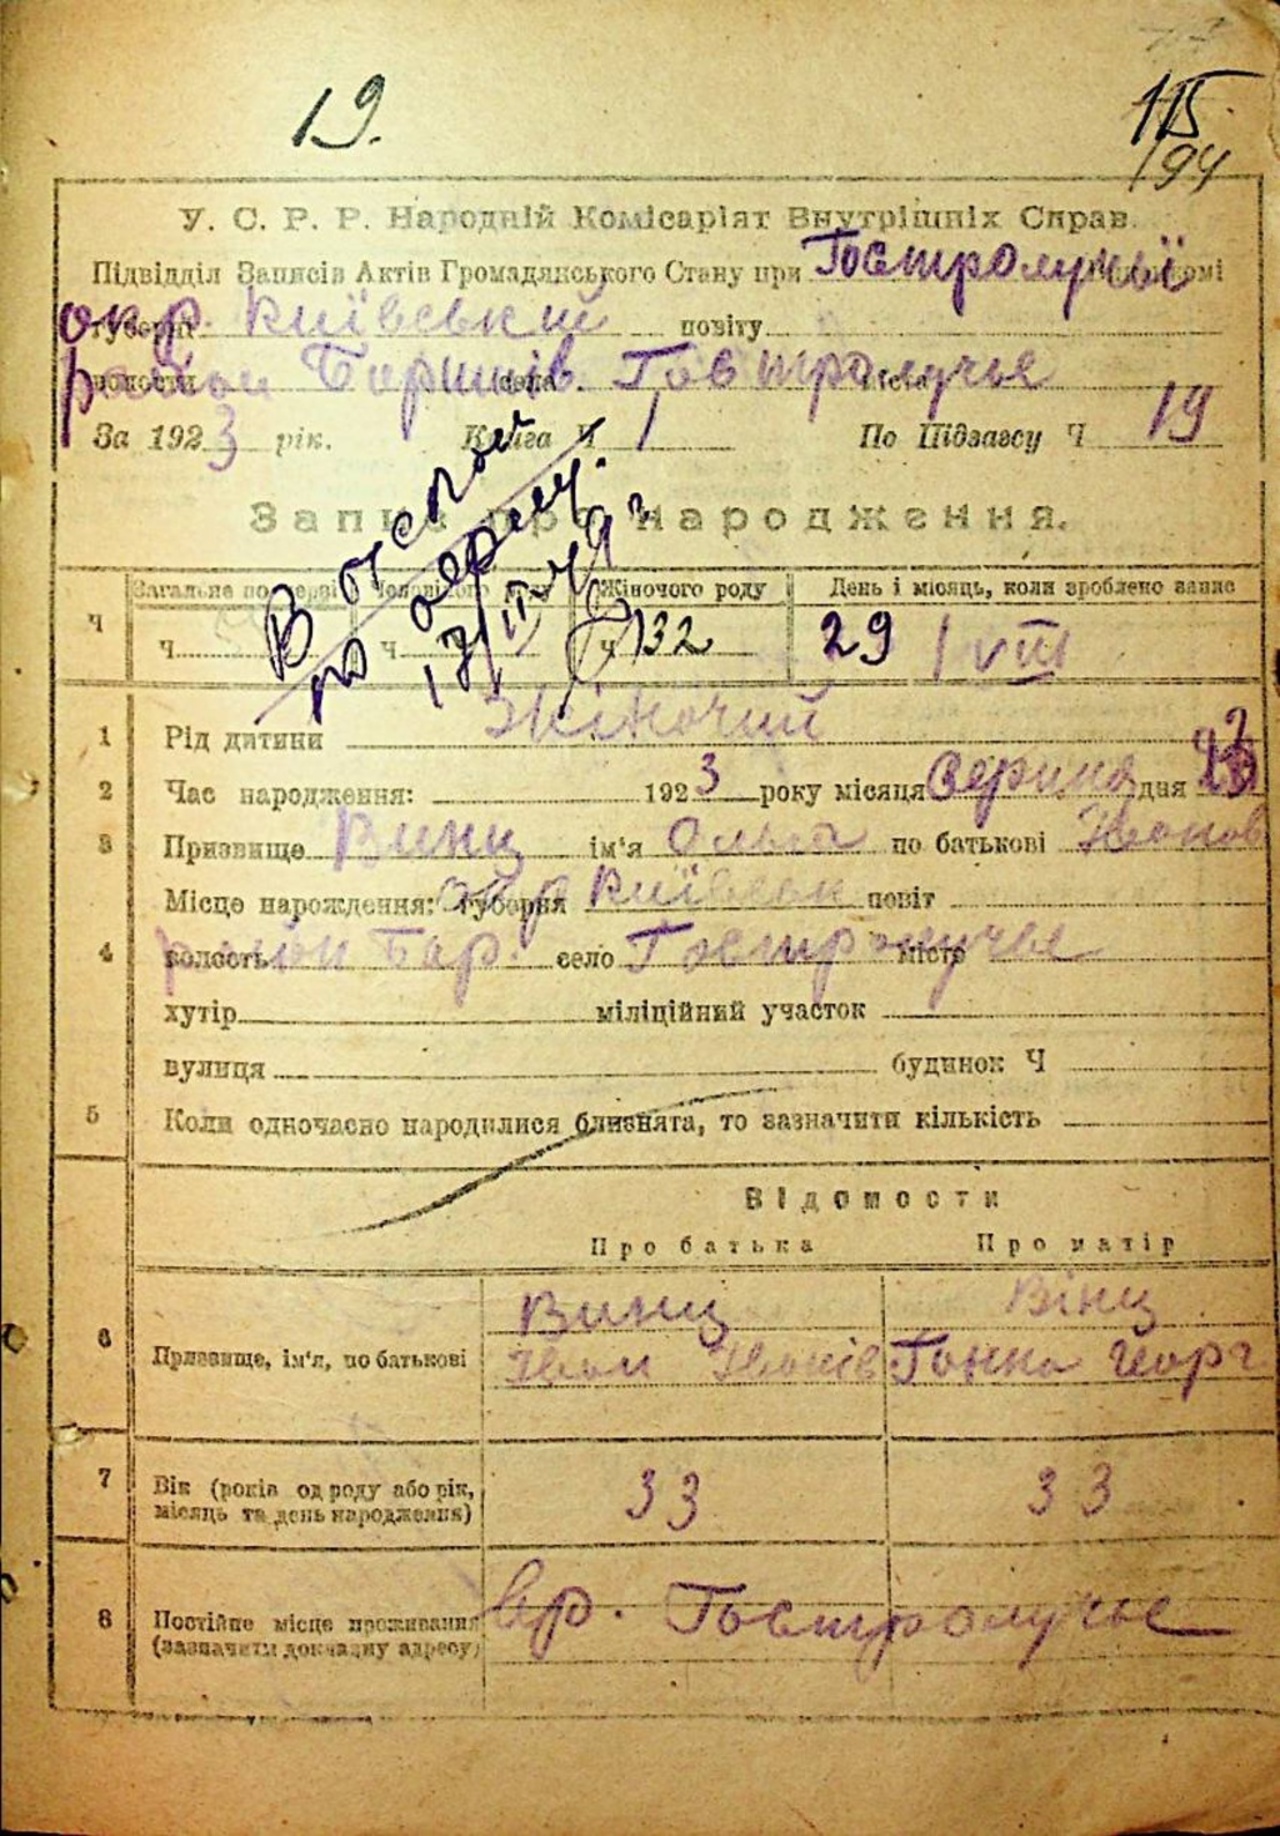 19.
115
194
У. С. Р. Р. Народній Комісаріят Внутрішніх Справ.
Підвідділ Записів Актів Громадянського Стану при Гостролучьї
окр. Київський повіту
район Баришів. села Гостролучье міста
За 1923 рік. Книга Ч 1 По Підзагсу Ч 19
Запис про народження.
Загальне по Жіночого роду День і місяць, коли зроблено запис
Ч Ч. Ч. Ч 132 29 / VIII
1 Рід дитини Жіночий
2 Час народження: 1923 року місяця Серпня дня
3 Призвище Винц ім'я Ольга по батькові Іванов
Місце нарождення: губерня окр Київськ повіт
4 волость район Бар. село Гостролучье місто
хутір міліційний участок
вулиця будинок Ч
5 Коли одночасно народилися близнята, то зазначити кількість
Відомости
Про батька Про матір
Винц Вінц
6 Призвище, ім'я, по батькові Іван Іванів Ганна Георг.
7 Вік (років од роду або рік, місяць та день народження) 33 33
8 Постійне місце проживання (зазначити докладну адресу) Гостролучье